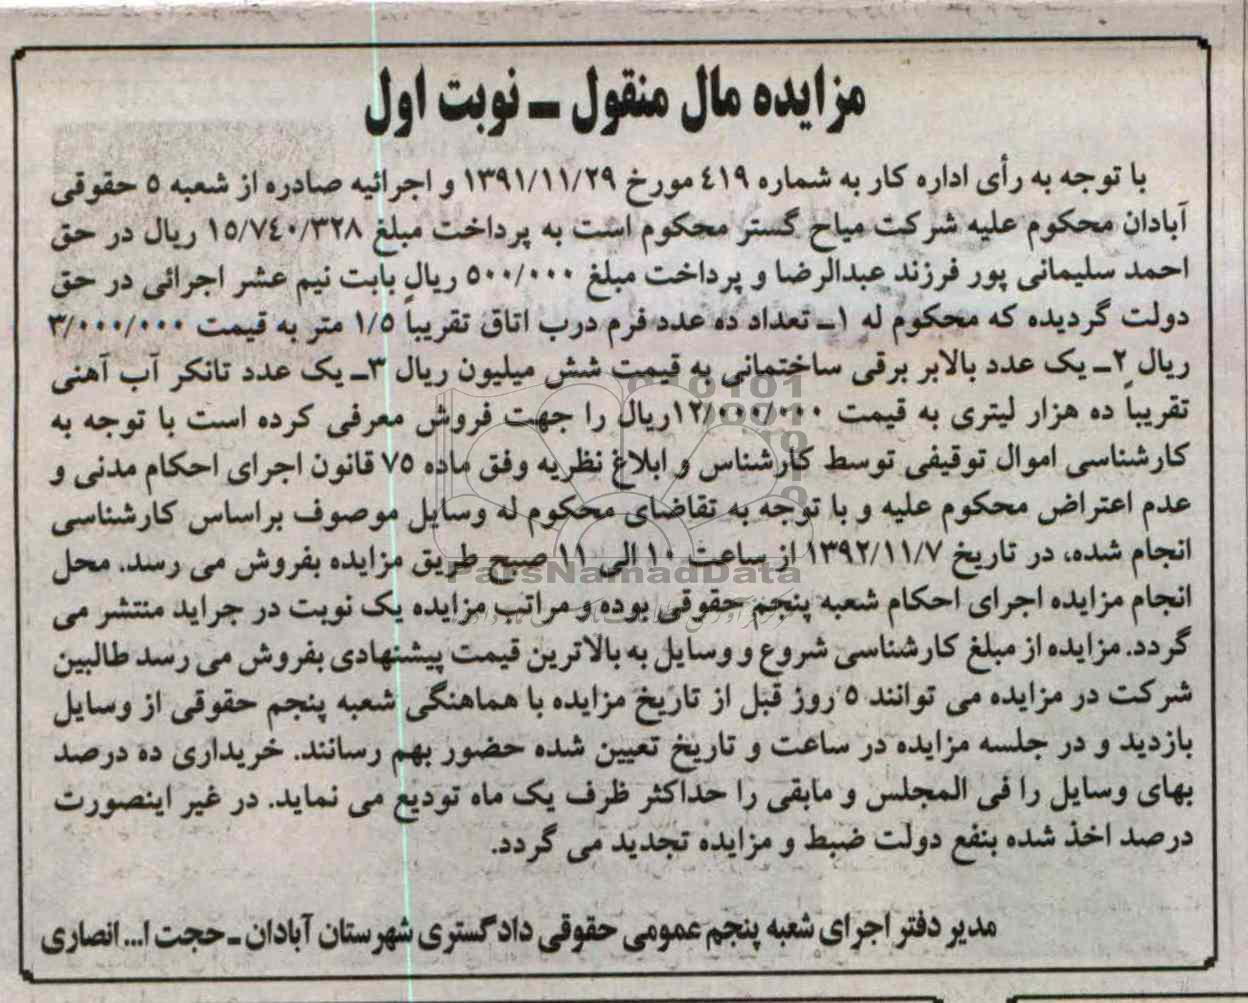 مزایده مال منقول ـ نوبت اول
با توجه به رأی اداره کار به شماره ٤١٩ مورخ ١٣٩١/١١/٢٩ و اجرائیه صادره از شعبه ٥ حقوقی
آبادان محکوم علیه شرکت میاح گستر محکوم است به پرداخت مبلغ ١٥/٧٤٠/٣٢٨ ریال در حق
احمد سلیمانی پور فرزند عبدالرضا و پرداخت مبلغ ٥٠٠/٠٠٠ ریال بابت نیم عشر اجرائی در حق
دولت گردیده که محکوم له ١ـ تعداد ده عدد فرم درب اتاق تقریباً ١/٥ متر به قیمت ٣/٠٠٠/٠٠٠
ریال ٢ـ یک عدد بالابر برقی ساختمانی به قیمت شش میلیون ریال ٣ـ یک عدد تانکر آب آهنی
تقریباً ده هزار لیتری به قیمت ١٢/٠٠٠/٠٠٠ریال را جهت فروش معرفی کرده است با توجه به
کارشناسی اموال توقیفی توسط کارشناس و ابلاغ نظریه وفق ماده ٧٥ قانون اجرای احکام مدنی و
عدم اعتراض محکوم علیه و با توجه به تقاضای محکوم له وسایل موصوف براساس کارشناسی
انجام شده، در تاریخ ١٣٩٢/١١/٧ از ساعت ١٠ الی ١١ صبح طریق مزایده بفروش می رسد. محل
انجام مزایده اجرای احکام شعبه پنجم حقوقی بوده و مراتب مزایده یک نوبت در جراید منتشر می
گردد. مزایده از مبلغ کارشناسی شروع و وسایل به بالاترین قیمت پیشنهادی بفروش می رسد طالبین
شرکت در مزایده می توانند ٥ روز قبل از تاریخ مزایده با هماهنگی شعبه پنجم حقوقی از وسایل
بازدید و در جلسه مزایده در ساعت و تاریخ تعیین شده حضور بهم رسانند. خریداری ده درصد
بهای وسایل را فی المجلس و مابقی را حداکثر ظرف یک ماه تودیع می نماید. در غیر اینصورت
درصد اخذ شده بنفع دولت ضبط و مزایده تجدید می گردد.
مدیر دفتر اجرای شعبه پنجم عمومی حقوقی دادگستری شهرستان آبادان ـ حجت ا... انصاری
ParsNamadData